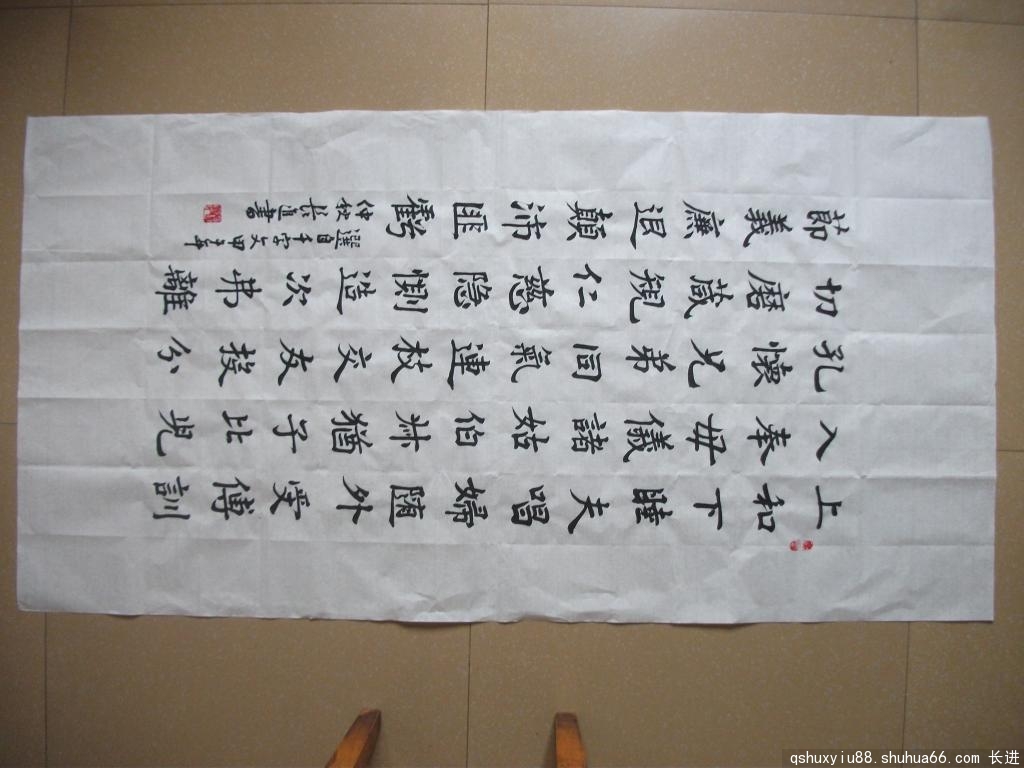 上和下睦夫唱婦隨外受傅訓
入奉母儀諸姑伯叔猶子比児
孔懷兄弟同氣連枝交友投分
切磨葴規仁慈隐惻造次弗離
莭義廉退顛沛匪虧
選自千字文甲午年
仲秋長進書
qshuxyiu88.shuhua66.com 长进